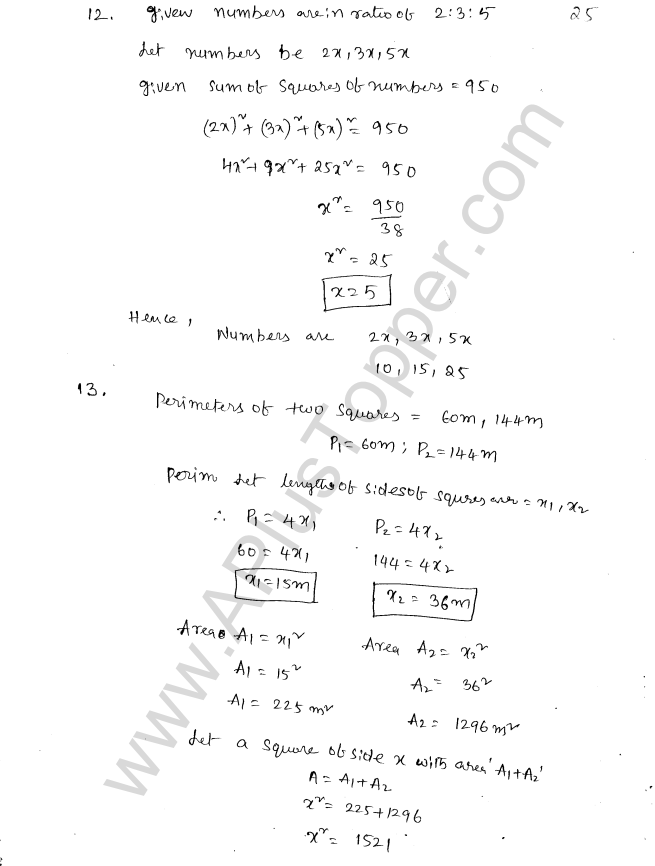 12. given numbers are in ratio of 2:3:5 25
Let numbers be 2x, 3x, 5x
given sum of squares of numbers = 950
(2x)² + (3x)² + (5x)² = 950
4x² + 9x² + 25x² = 950
x² = 950/38
x² = 25
x = 5
Hence,
Numbers are 2x, 3x, 5x
10, 15, 25
13.
Perimeters of two squares = 60m, 144m
P₁ = 60m ; P₂ = 144m
Perim Let lengths of sides of squres are = x₁, x₂
∴ P₁ = 4x₁ P₂ = 4x₂
60 = 4x₁ 144 = 4x₂
x₁ = 15m x₂ = 36m
Area A₁ = x₁² Area A₂ = x₂²
A₁ = 15² A₂ = 36²
A₁ = 225 m² A₂ = 1296 m²
Let a square of side x with area 'A₁+A₂'
A = A₁ + A₂
x² = 225 + 1296
x² = 1521
www.APlusTopper.com